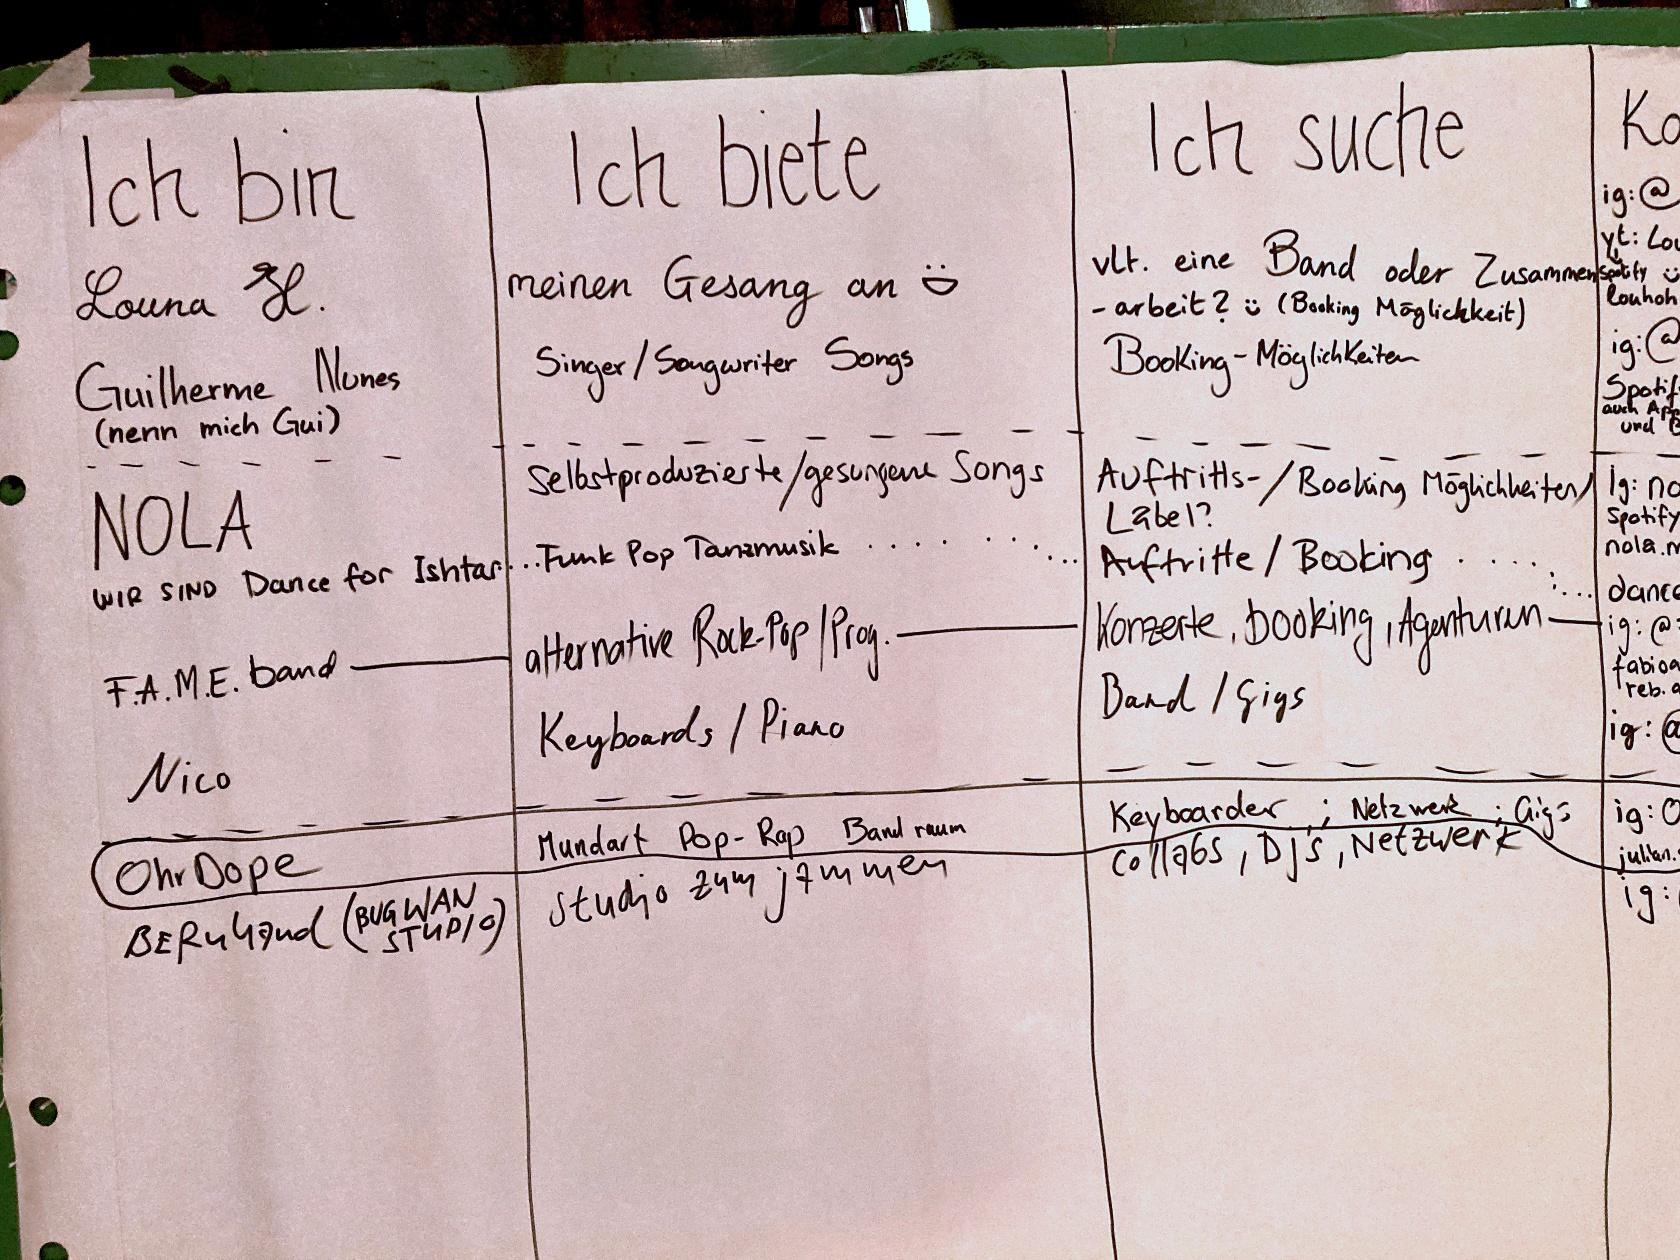 Ich bin
Ich biete
Ich suche
Louna H.
meinen Gesang an
vlt. eine Band oder Zusammen
- arbeit? (Booking Möglichkeit)
ig: @
yt: Lou
Spotify
louhoh
Guilherme Nunes
(nenn mich Gui)
Singer/Songwriter Songs
Booking-Möglichkeiten
ig: @
Spotif
auch App
und B
NOLA
Selbstproduzierte/gesungene Songs
Auftritts-/Booking Möglichkeiten/
Label?
Ig: no
Spotify
nola.m
WIR SIND Dance for Ishtar
...Funk Pop Tanzmusik
Auftritte / Booking
dance
F.A.M.E. band
alternative Rock-Pop/Prog.
Konzerte, booking, Agenturen
ig: @
fabio
reb.a
Nico
Keyboards / Piano
Band / Gigs
ig: @
OhrDope
Mundart Pop-Rap Bandraum
Keyboarder ; Netzwerk ; Gigs
ig: O
julian.
BERuhand (BUGWAN
STUDIO)
studio zum jammen
collabs, Djs, Netzwerk
ig: